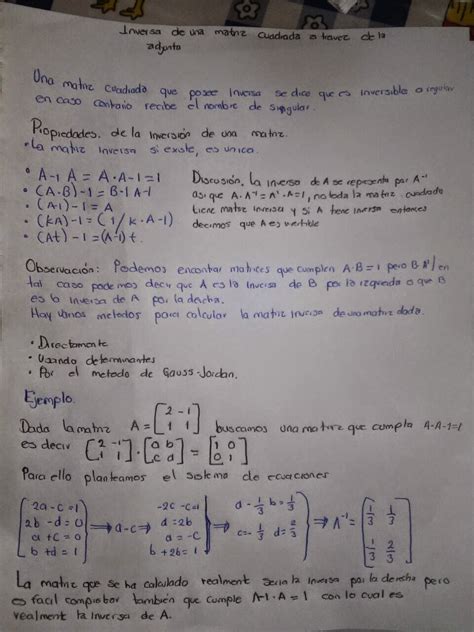 Inversa de una matriz cuadrada a travez de la
adjunta
Una matriz cuadrada que posee inversa se dice que es inversible o regular
en caso contario recibe el nombre de singular.
Propiedades. de la inversión de una matriz.
• La matriz inversa si existe, es unica.
• A-1 A = A·A-1=1
• (A·B)-1=B-1 A-1
• (A-1)-1=A
• (kA)-1=(1/k·A-1)
• (At)-1=(A-1)t.
Discusión. La inversa de A se representa por A⁻¹
asi que A·A⁻¹=A⁻¹·A=1, no toda la matriz cuadrada
tiene matriz inversa y si A tiene inversa entonces
decimos que A es vertible
Observación: Podemos encontar matrices que cumplen A·B=1 pero B·A≠1 en
tal caso podemos decir que A es la inversa de B por la izqueda o que B
es la inversa de A por la decha.
Hay varios metodos para calcular la matriz inversa de una matriz dada.
• Directamente
• Usando determinantes
• Por el metodo de Gauss-Jordan.
Ejemplo.
Dada la matriz A = [2 -1
1 1] buscamos una matriz que cumpla A·A-1=1
es decir [2 -1
1 1]·[a b
c d] = [1 0
0 1]
Para ello planteamos el sistema de ecuaciones
2a-c=1
2b-d=0
a+c=0
b+d=1
⇒ a-c ⇒
-2c-c=1
d=2b
a=-c
b+2b=1
⇒
a=1/3 b=1/3
c=-1/3 d=2/3
⇒ A⁻¹=
[1/3 1/3
1/3 2/3]
La matriz que se ha calculado realmente seria la inversa por la derecha pero
es facil comprobar tambien que cumple A-1·A=1 con lo cual es
realmente la inversa de A.